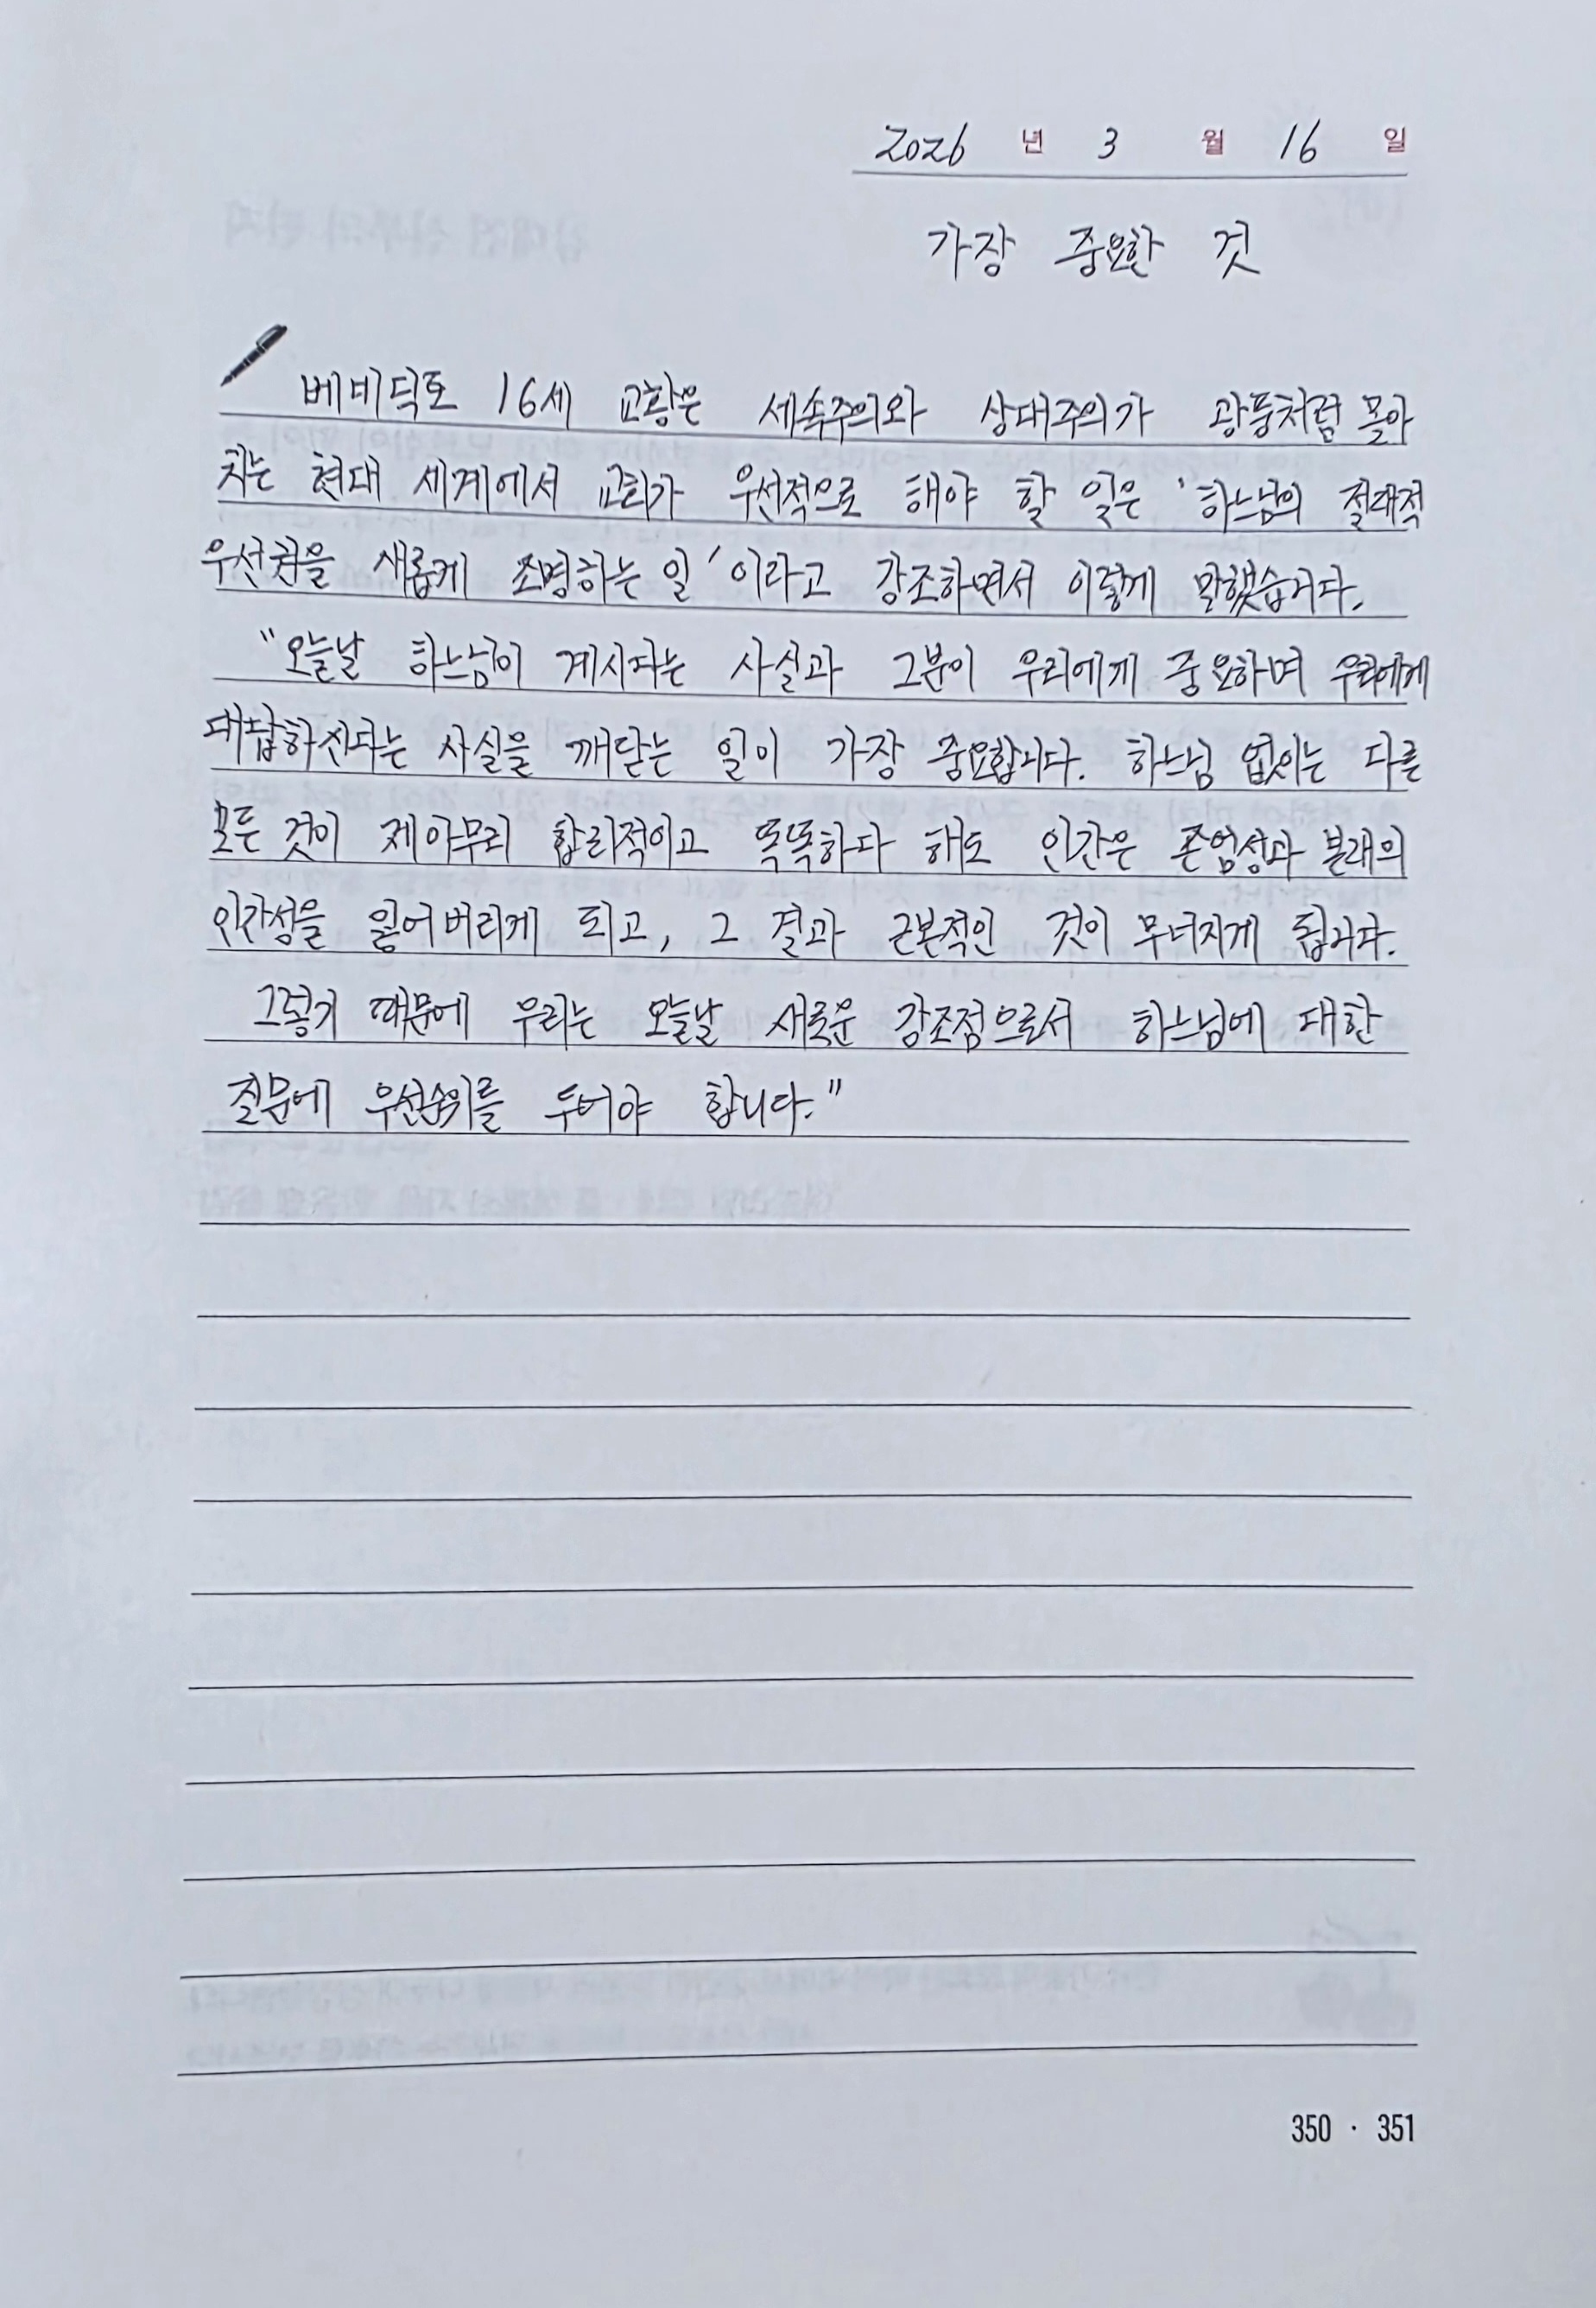 2026 년 3 월 16 일
가장 중요한 것
베네딕토 16세 교황은 세속주의와 상대주의가 광풍처럼 몰아
치는 현대 세계에서 교회가 우선적으로 해야 할 일은 '하느님의 절대적
우선권을 새롭게 조명하는 일'이라고 강조하면서 이렇게 말했습니다.
"오늘날 하느님이 계시다는 사실과 그분이 우리에게 중요하며 우리에게
대답하신다는 사실을 깨닫는 일이 가장 중요합니다. 하느님 없이는 다른
모든 것이 제아무리 합리적이고 똑똑하다 해도 인간은 존엄성과 본래의
인간성을 잃어버리게 되고, 그 결과 근본적인 것이 무너지게 됩니다.
그렇기 때문에 우리는 오늘날 새로운 강조점으로서 하느님에 대한
질문에 우선순위를 두어야 합니다."
350 · 351